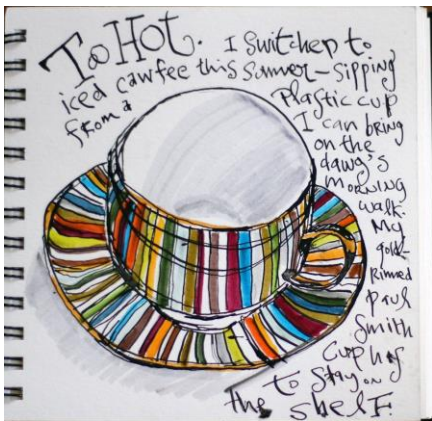 Too Hot. I switched to
iced cawfee this summer – sipping
from a plastic cup
I can bring
on the
dawg's
morning
walk.
My
gold-
rimmed
paul
smith
cup has
to stay on
the shelf.